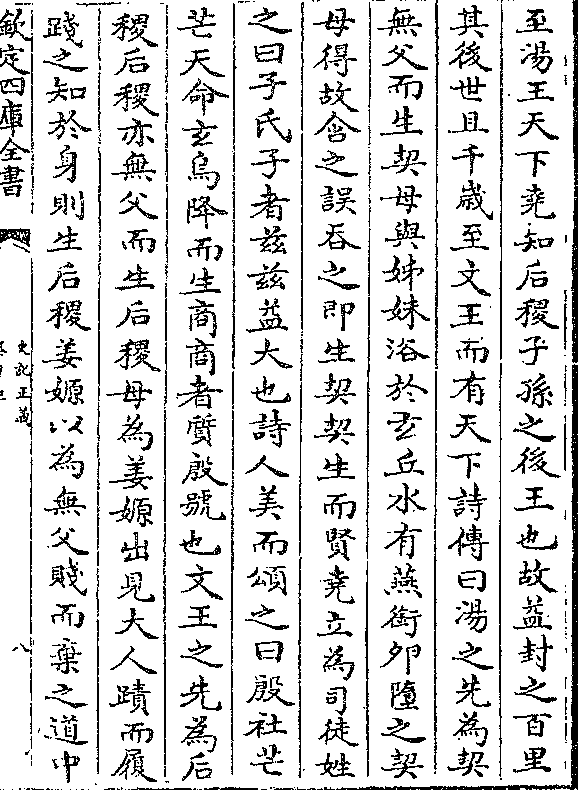 至湯王天下堯知后稷子孫之後王也故益封之百里
其後世且千歲至文王而有天下詩傳曰湯之先為契
無父而生契母與姊妹浴於玄丘水有燕銜卵墮之契
母得故含之誤吞之即生契契生而賢堯立為司徒姓
之曰子氏子者兹兹益大也詩人美而頌之曰殷社芒
芒天命玄鳥降而生商商者質殷號也文王之先為后
稷后稷亦無父而生后稷母為姜嫄出見大人蹟而履
踐之知於身則生后稷姜嫄以為無父賤而棄之道中
欽定四庫全書
史記正義
八